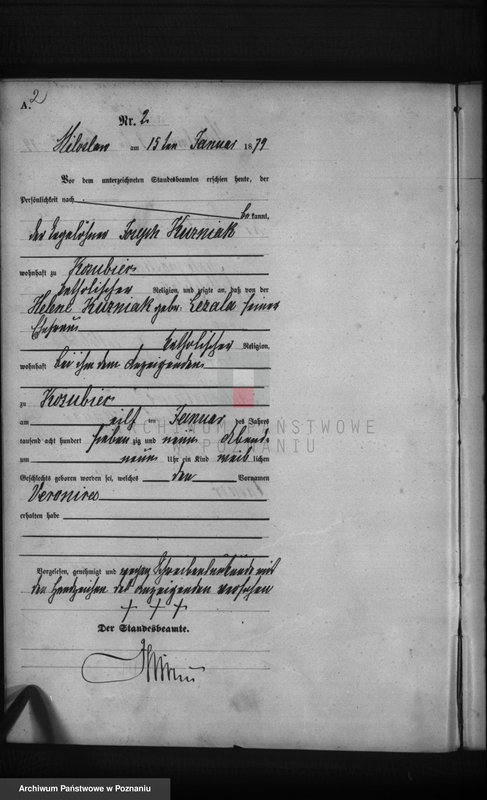 A. 2
Nr. 2.
Miloslaw am 15ten Januar 1879
Vor dem unterzeichneten Standesbeamten erschien heute, der
Persönlichkeit nach
be kannt,
der Tagelöhner Joseph Kuzniak
wohnhaft zu Kozubiec
katholischer Religion, und zeigte an, daß von der
Helene Kuzniak geb: Lezala seiner
Ehefrau
katholischer Religion,
wohnhaft bei ihm dem Anzeigenden
zu Kozubiec
am eilf ten Januar des Jahres
tausend acht hundert sieben zig und neun Abends
um neun Uhr ein Kind weib lichen
Geschlechts geboren worden sei, welches den Vornamen
Veronica
erhalten habe
Vorgelesen, genehmigt und wegen Schreibensunkunde mit
den Handzeichen des Anzeigenden versehen
+ + +
Der Standesbeamte.
ARCHIWUM PAŃSTWOWE
W POZNANIU
Archiwum Państwowe w Poznaniu